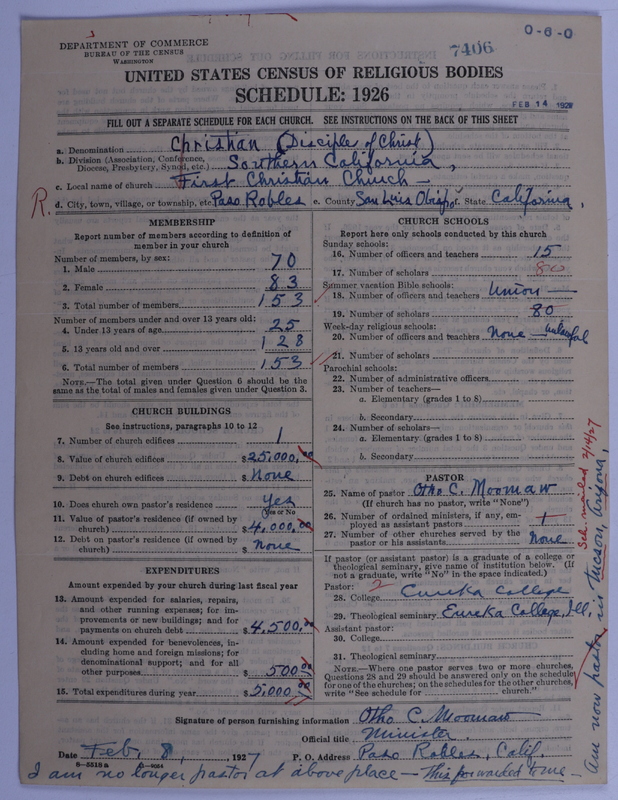 0-6-0
7406
DEPARTMENT OF COMMERCE
BUREAU OF THE CENSUS
WASHINGTON
UNITED STATES CENSUS OF RELIGIOUS BODIES
SCHEDULE: 1926
FEB 14 192
FILL OUT A SEPARATE SCHEDULE FOR EACH CHURCH. SEE INSTRUCTIONS ON THE BACK OF THIS SHEET
a. Denomination Christian (Disciples of Christ)
b. Division (Association, Conference, Diocese, Presbytery, Synod, etc.) Southern California,
c. Local name of church First Christian Church —
R. d. City, town, village, or township, etc. Paso Robles e. County San Luis Obispo f. State California,
MEMBERSHIP
Report number of members according to definition of
member in your church
Number of members, by sex:
1. Male 70
2. Female 83
3. Total number of members 153
Number of members under and over 13 years old:
4. Under 13 years of age 25
5. 13 years old and over 128
6. Total number of members 153
NOTE.—The total given under Question 6 should be the
same as the total of males and females given under Question 3.
CHURCH BUILDINGS
See instructions, paragraphs 10 to 12
7. Number of church edifices 1
8. Value of church edifices $25,000.00
9. Debt on church edifices $None
10. Does church own pastor's residence Yes
(Yes or No)
11. Value of pastor's residence (if owned by
church) $4,000.00
12. Debt on pastor's residence (if owned by
church) $None
EXPENDITURES
Amount expended by your church during last fiscal year
13. Amount expended for salaries, repairs,
and other running expenses; for im-
provements or new buildings; and for
payments on church debt $4,500.00
14. Amount expended for benevolences, in-
cluding home and foreign missions; for
denominational support; and for all
other purposes $500.00
15. Total expenditures during year $5,000.00
CHURCH SCHOOLS
Report here only schools conducted by this church
Sunday schools:
16. Number of officers and teachers 15
17. Number of scholars 80
Summer vacation Bible schools:
18. Number of officers and teachers Union —
19. Number of scholars 80
Week-day religious schools:
20. Number of officers and teachers None — unlawful
21. Number of scholars
Parochial schools:
22. Number of administrative officers
23. Number of teachers—
a. Elementary (grades 1 to 8)
b. Secondary
24. Number of scholars—
a. Elementary (grades 1 to 8)
b. Secondary
PASTOR
25. Name of pastor Otho C. Moomaw
(If church has no pastor, write "None")
26. Number of ordained ministers, if any, em-
ployed as assistant pastors 1
27. Number of other churches served by the
pastor or his assistants None
If pastor (or assistant pastor) is a graduate of a college or
theological seminary, give name of institution below. (If
not a graduate, write "No" in the space indicated.)
Pastor: 2
28. College Eureka College
29. Theological seminary Eureka College, Ill.
Assistant pastor:
30. College
31. Theological seminary
NOTE.—Where one pastor serves two or more churches,
Questions 28 and 29 should be answered only on the schedule
for one of the churches; on the schedules for the other churches,
write "See schedule for ........ church."
Signature of person furnishing information Otho C. Moomaw
Official title Minister
Date Feb. 8, 1927 P. O. Address Paso Robles, Calif.
8—5518a
I am no longer pastor at above place — This forwarded to me —
Am now pastor in Tucson, Arizona,
Sch. mailed 2/14/27